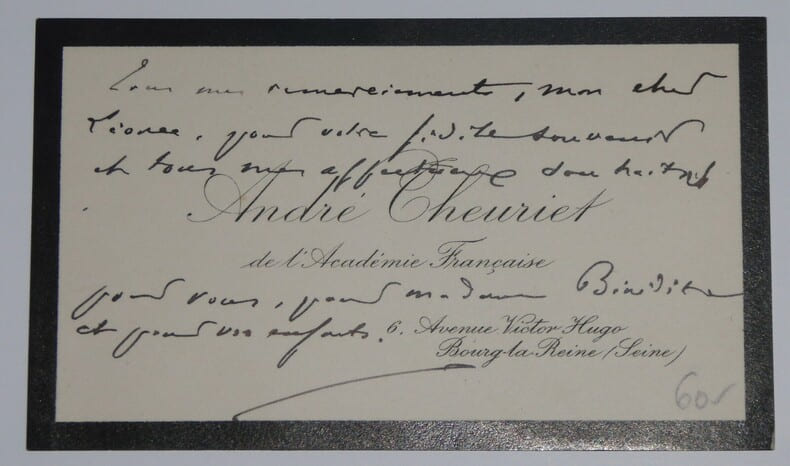 Tous mes remerciements, mon cher
Léonce, pour votre fidèle souvenir
et tous mes affectueux souhaits
André Theuriet
de l'Académie Française
pour vous, pour madame Bénédite
et pour vos enfants.
6. Avenue Victor Hugo
Bourg-la-Reine (Seine)
60